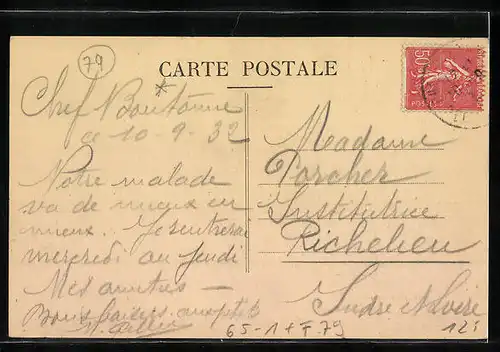 79
CARTE POSTALE
Chef Boutonne
ce 10-9-32
Notre malade
va de mieux en
mieux. Je rentrerai
mercredi ou jeudi
Mes amitiés —
Bons baisers aux ptits
Madame
Porcher
Institutrice
Richelieu
Indre et Loire
50c
POSTES
65-1+F.79
12